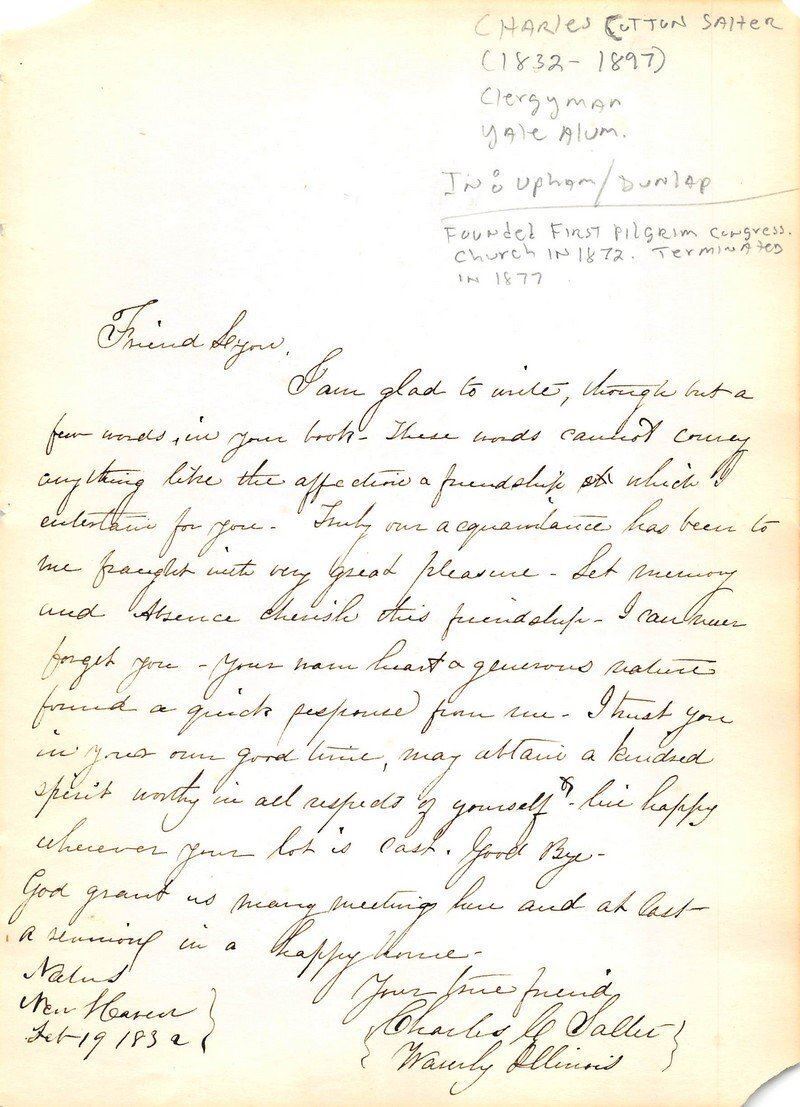 CHARles COTTON SAlteR
(1832 - 1897)
Clergyman
Yale Alum.
IN: Upham/DUNlAp
FOUNded FIRST PIlgRIm CONgRess.
Church IN 1872. TeRmINAted
IN 1877
Friend Lyon,
I am glad to write, though but a
few words, in your book - These words cannot convey
anything like the affection & friendship which I
entertain for you - Truly our acquaintance has been to
me fraught with very great pleasure - Let memory
and Absence cherish this friendship - I can never
forget you - Your warm heart & generous nature
found a quick response from me - I trust you
in your own good time, may obtain a kindred
spirit worthy in all respects of yourself & live happy
wherever your lot is cast. Good Bye -
God grant us many meeting here and at last -
a reunion in a happy home -
Your true friend
Natus
New Haven
Feb 19 1832
Charles C Salter
Waverly Illinois